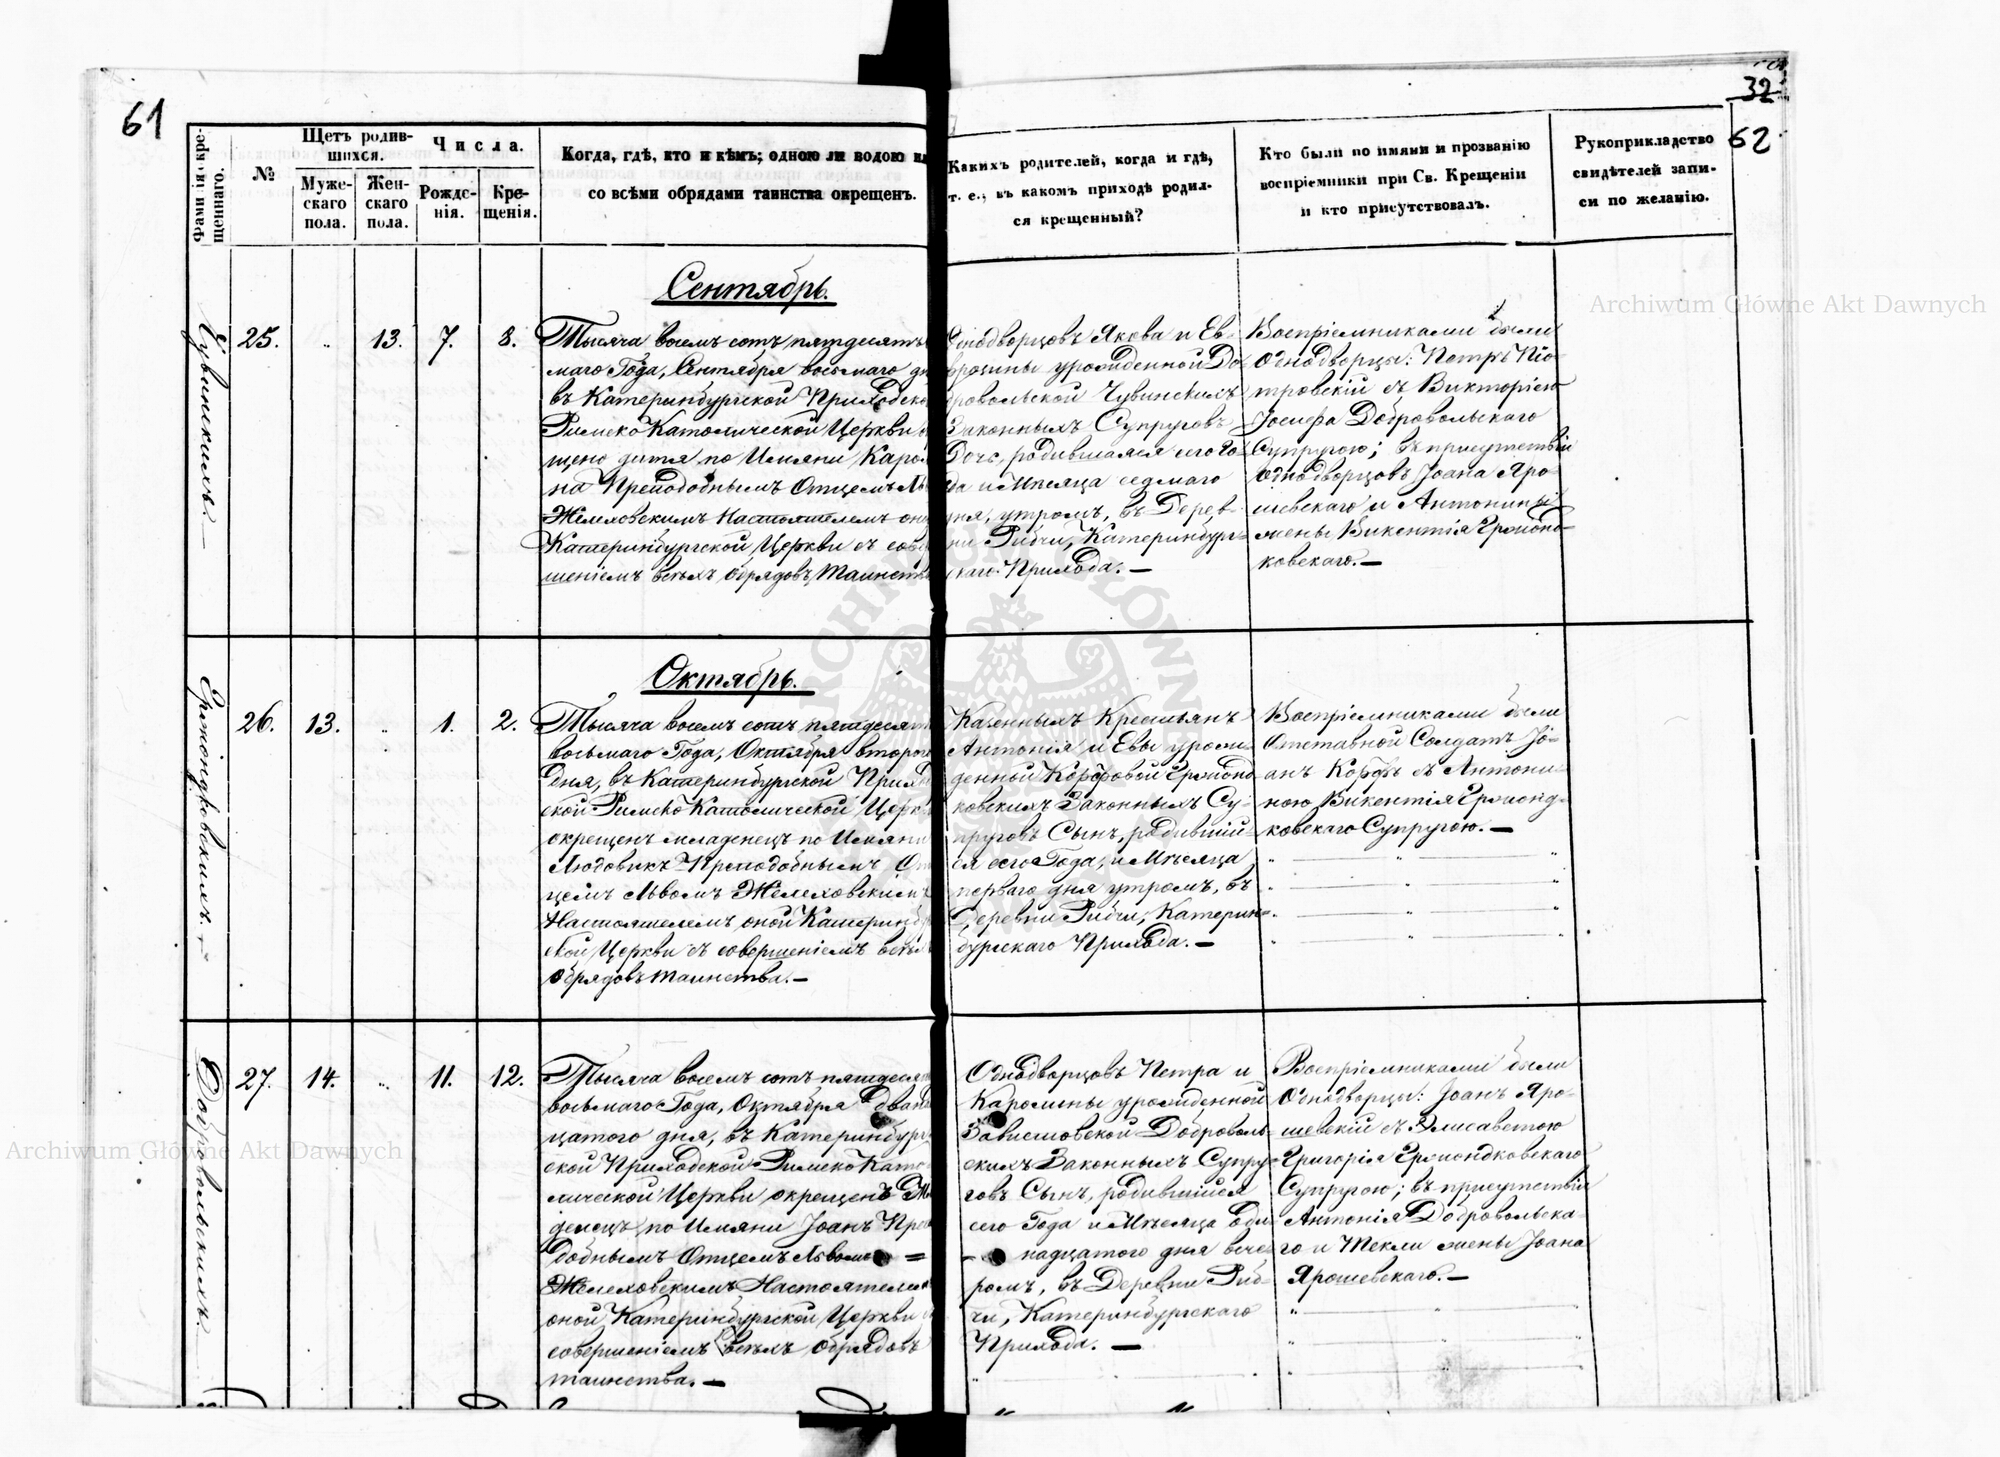 61
32
62
Фамилія кре-
щеннаго.
№
Щетъ родив-
шихся.
Муже-
скаго
пола.
Жен-
скаго
пола.
Числа.
Рожде-
нія.
Кре-
щенія.
Когда, гдѣ, кто и кѣмъ; одною ли водою
со всѣми обрядами таинства окрещенъ.
Какихъ родителей, когда и гдѣ,
т. е., въ какомъ приходѣ родил-
ся крещенный?
Кто были по имями и прозванію
воспріемники при Св. Крещеніи
и кто присутствовалъ.
Рукоприкладство
свидѣтелей запи-
си по желанію.
Чувинскихъ
25.
13.
7.
8.
Сентябрь.
Тысяча восемъ сотъ пятдесятъ
маго Года, Сентября восьмаго
въ Катеринбургской Приходско
Римско Католической Церкви
щено дитя по Имяни Каро
на Преподобнымъ Отцемъ
Желеховскимъ Настоятелемъ
Катеринбургской Церкви съ
шеніемъ всѣхъ обрядовъ Таинств
Однодворцовъ Якова и Ев-
фрозины урожденной До-
бровольской Чувинскихъ
Законныхъ Супруговъ
Дочь, родившаяся сего Го-
да и Мѣсяца седмаго
дня, утромъ, въ Дерев-
ни Рибчи, Катеринбург-
скаго Прихода. —
Воспріемниками были
Однодворцы: Петръ Піо-
тровскій съ Викторіею
Іосифа Добровольскаго
Супругою; въ присутствіи
Однодворцовъ Іоана Яро-
шевскаго и Антонины
жены Викентія Гржонд-
ковскаго. —
Гржондковскихъ.
26.
13.
1.
2.
Октябрь.
Тысяча восемъ сотъ пятдесятъ
восьмаго Года, Октября втораго
дня, въ Катеринбургской Прихо
ской Римско Католической Церк
окрещенъ младенецъ по Имяни
Людовикъ Преподобнымъ От
цемъ Львомъ Желеховскимъ
Настоятелемъ оной Катеринбург
ской Церкви съ совершеніемъ всѣхъ
обрядовъ таинства. —
Казенныхъ Крестьянъ
Антонія и Евы урож-
денной Корфовой Гржонд-
ковскихъ Законныхъ Су-
пруговъ Сынъ, родивший-
ся сего Года, и Мѣсяца
перваго дня утромъ, въ
Деревни Рибчи, Катерин-
бургскаго Прихода. —
Воспріемниками были
Отставной Солдатъ Іо-
анъ Корфъ съ Антони-
ною Викентія Гржонд-
ковскаго Супругою. —
Добровольскихъ
27.
14.
11.
12.
Тысяча восемъ сотъ пятдесятъ
восьмаго Года, Октября двана
цатого дня, въ Катеринбург
ской Приходской Римско Като
лической Церкви окрещенъ Мла
денецъ, по Имяни Іоанъ Препо
добнымъ Отцемъ Львомъ =
Желеховскимъ Настоятелемъ
оной Катеринбургской Церкви
совершеніемъ всѣхъ обрядовъ
таинства. —
Однодворцовъ Петра и
Каролины урожденной
Завистовской Доброволь-
скихъ Законныхъ Супру-
говъ Сынъ, родившійся
сего Года и Мѣсяца оди-
надцатого дня вече-
ромъ, въ Деревни Риб-
чи, Катеринбургскаго
Прихода. —
Воспріемниками были
Однодворцы: Іоанъ Яро-
шевскій съ Елисаветою
Григорія Гржондковскаго
Супругою; въ присутствіи
Антонія Добровольска-
го и Текли жены Іоана
Ярошевскаго. —
Archiwum Główne Akt Dawnych
Archiwum Główne Akt Dawnych